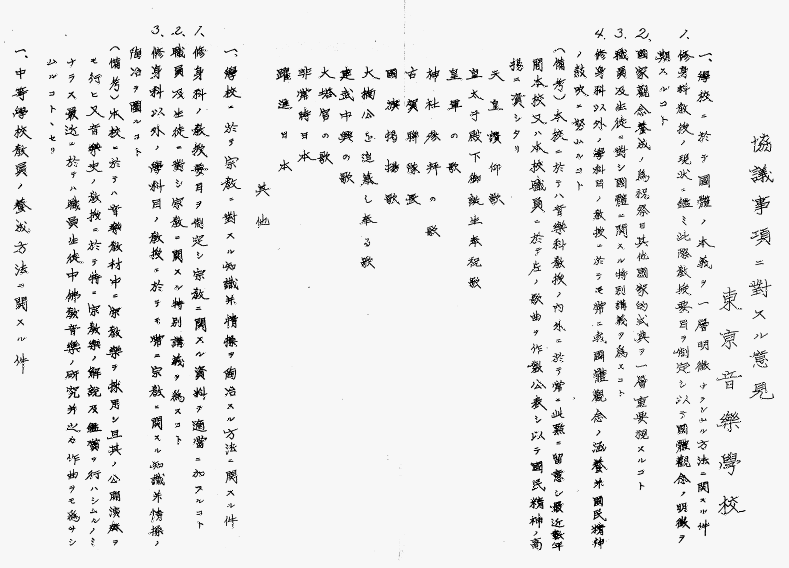 協議事項ニ對スル意見
東京音樂學校
一、學校ニ於テ國體ノ本義ヲ一層明徴ナラシムル方法ニ關スル件
1、修身科教授ノ現状ニ鑑ミ此際教授要目ヲ制定シ以テ國體觀念ノ明徴ヲ
期スルコト
2、國家觀念養成ノ爲祝祭日其他國家的式典ヲ一層重要視スルコト
3、職員及生徒ニ對シ國體ニ關スル特別講義ヲ爲スコト
4、修身科以外ノ學科目ノ教授ニ於テモ常ニ我國體觀念ノ涵養並國民精神
ノ鼓吹ニ努ムルコト
(備考)本校ニ於テハ音樂科教授ノ内外ニ於テ常ニ此點ニ留意シ最近數年
間本校又ハ本校職員ニ於テ左ノ歌曲ヲ作製公表シ以テ國民精神ノ高
揚ニ資シタリ
天皇讃仰歌
皇太子殿下御誕生奉祝歌
皇軍の歌
神社参拜の歌
古賀聯隊長
國旗掲揚歌
大楠公を追慕し奉る歌
建武中興の歌
大塔宮の歌
非常時日本
躍進日本
其他
一、學校ニ於テ宗教ニ對スル知識並情操ヲ陶冶スル方法ニ關スル件
1、修身科ノ教授要目ヲ制定シ宗教ニ關スル資料ヲ適當ニ加フルコト
2、職員及生徒ニ對シ宗教ニ關スル特別講義ヲ爲スコト
3、修身科以外ノ學科目ノ教授ニ於テモ常ニ宗教ニ關スル知識並情操ノ
陶冶ヲ圖ルコト
(備考)本校ニ於テハ音樂教材中ニ宗教樂ヲ採用シ且其ノ公開演奏ヲ
モ行ヒ又音樂史ノ教授ニ於テ特ニ宗教樂ノ解説及鑑賞ヲ行ハシムルノミ
ナラス最近ニ於テハ職員生徒中佛教音樂ノ研究並之カ作曲ヲモ爲サシ
ムルコトヽセリ
一、中等學校教員ノ養成方法ニ關スル件